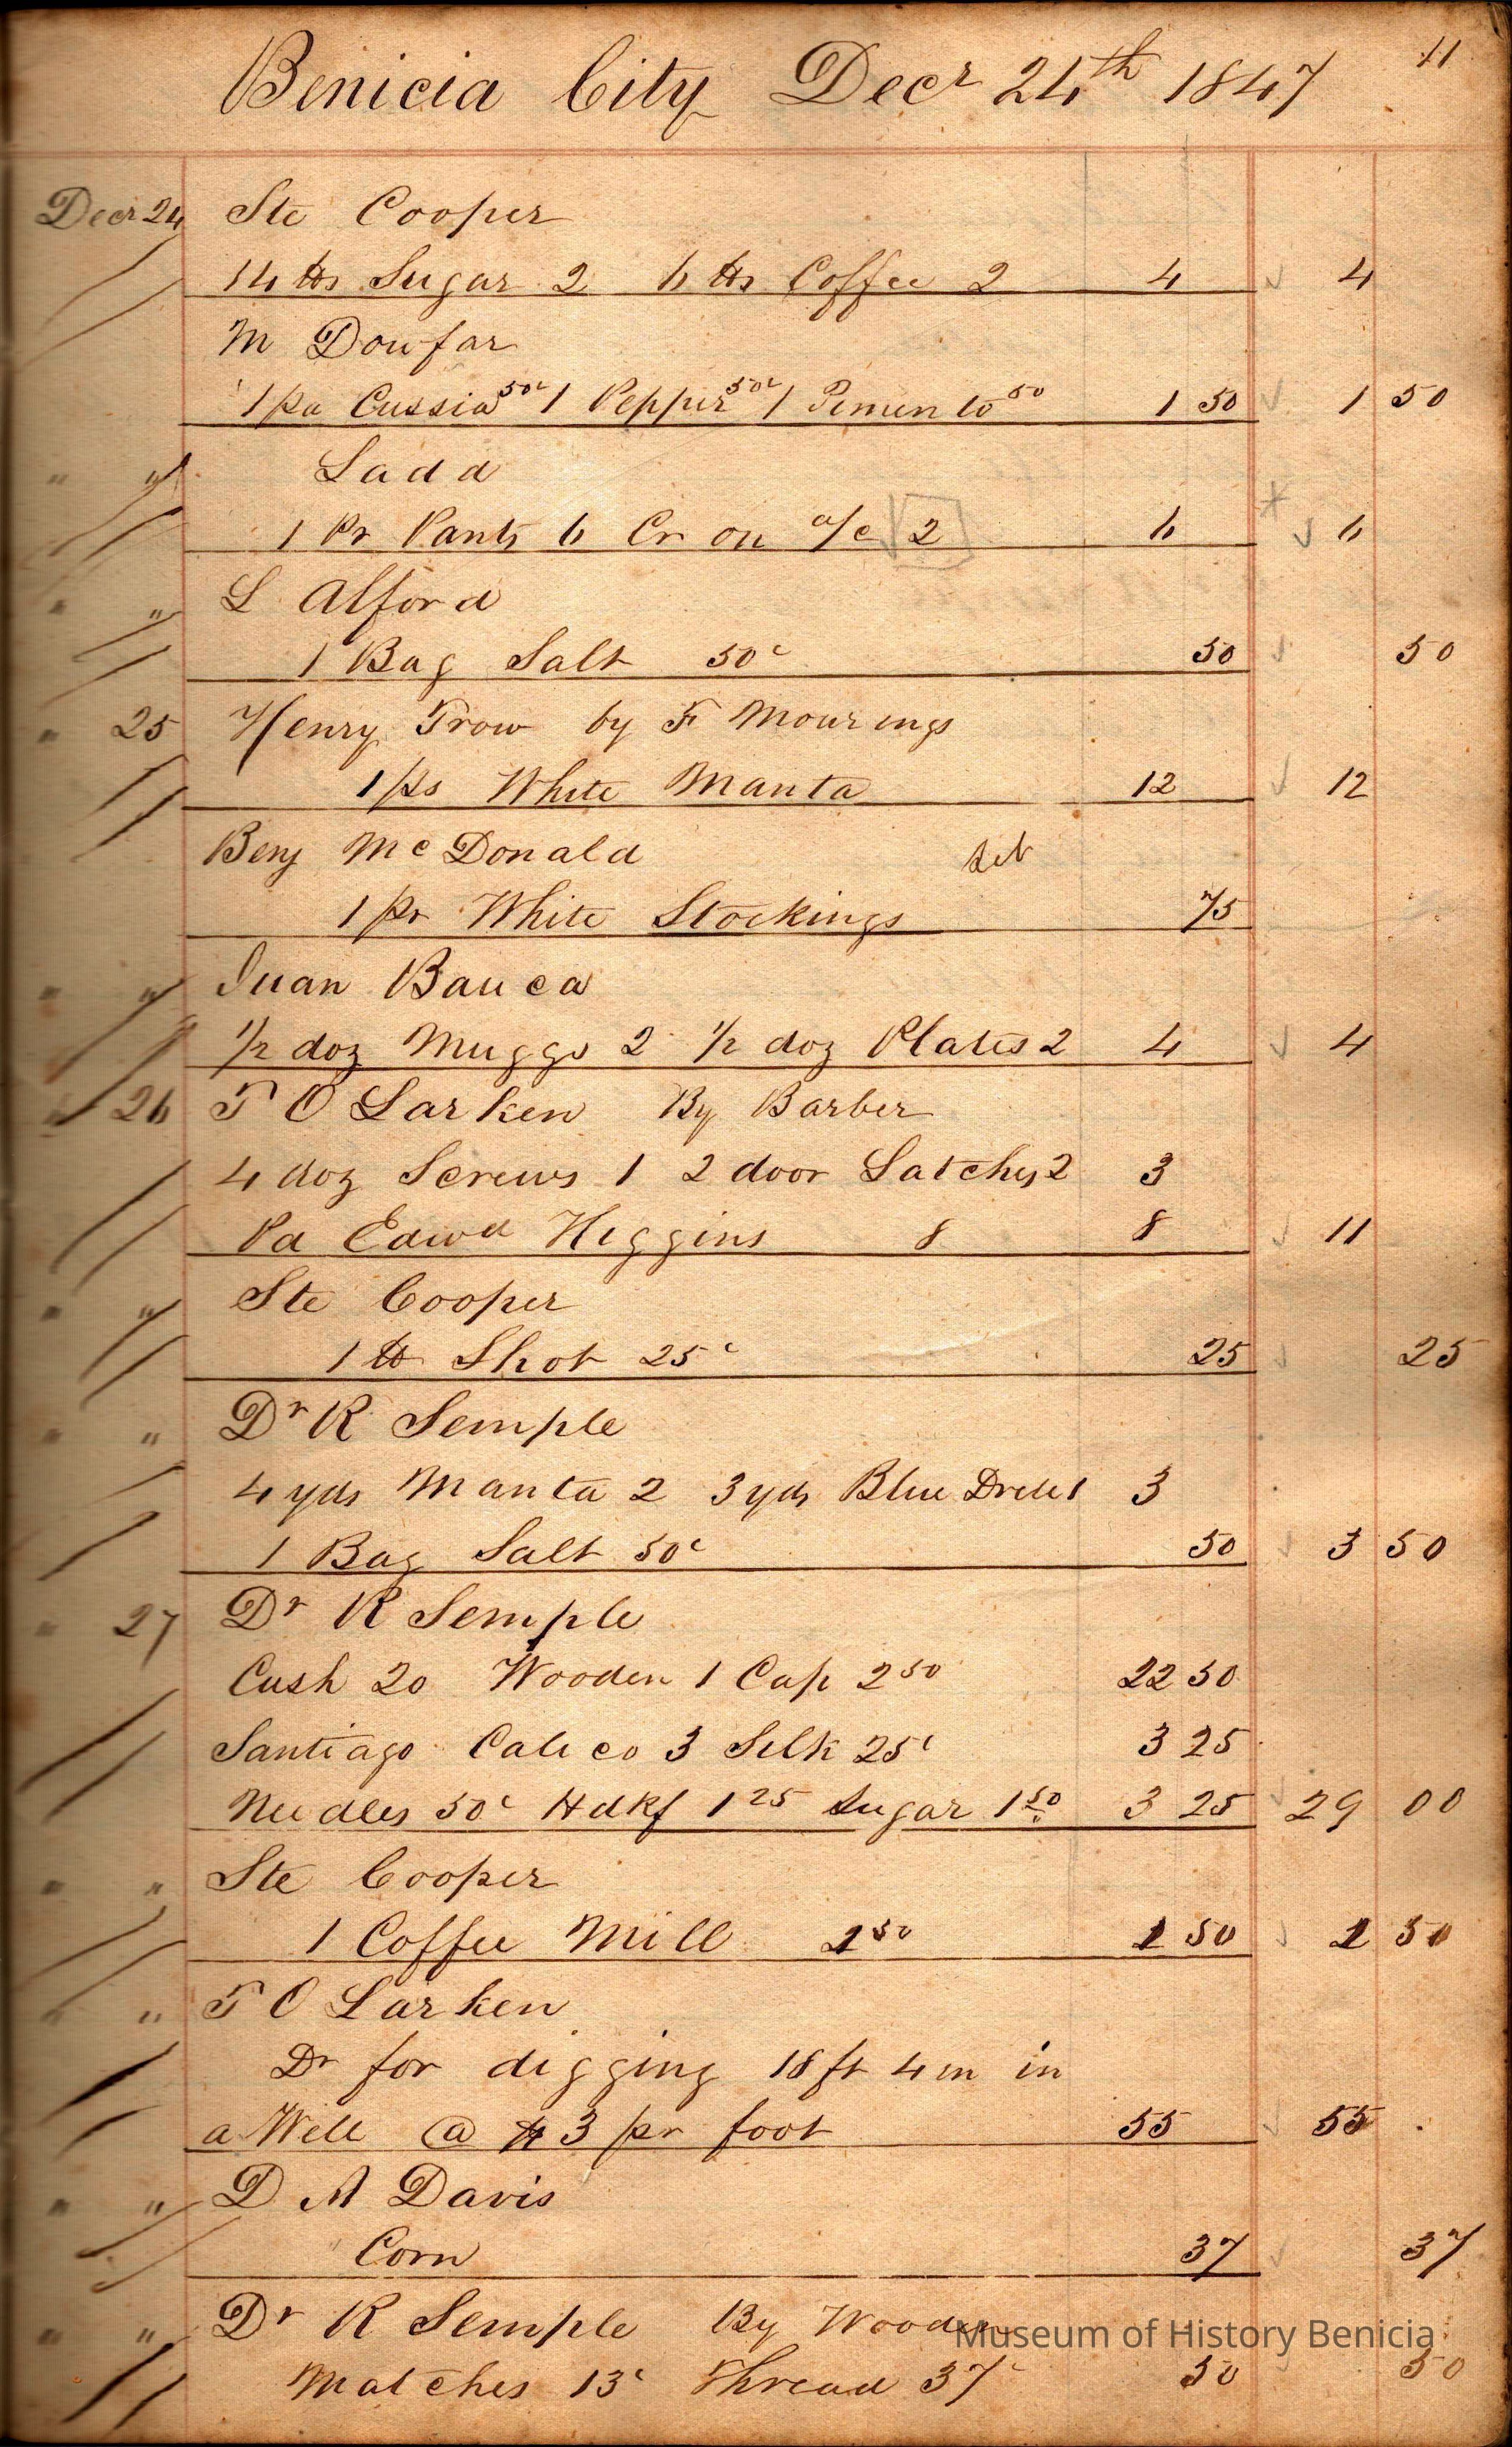 11
Benicia City Decr 24th 1847
Decr 24 Ste Cooper
14 lbs Sugar 2 6 lbs Coffee 2 4 4
M Doufar
1 pa Cassia 50c 1 Pepper 50c 1 Pimento 50 1 50 1 50
" " Ladd
1 Pr Pants 6 Cr on a/c 2 6 6
" " L Alford
1 Bag Salt 50c 50 50
" 25 Henry Trow by F Mourings
1 ps White Manta 12 12
Benj McDonald
1 pr White Stockings 75
" " Juan Bauca
1/2 doz Muggs 2 1/2 doz Plates 2 4 4
" 26 T O Larken By Barber
4 doz Screws 1 2 door Latches 2 3
Pd Edwd Higgins 8 8 11
" " Ste Cooper
1 lb Shot 25c 25 25
" " Dr R Semple
4 yds Manta 2 3 yds Blue Drill 1 3
1 Bag Salt 50c 50 3 50
" 27 Dr R Semple
Cash 20 Wooden 1 Cap 2 50 22 50
Santiago Calico 3 Silk 25c 3 25
Needles 50c Hdkf 1 25 Sugar 1 50 3 25 29 00
" " Ste Cooper
1 Coffee Mill 1 50 1 50 1 50
" " T O Larken
Dr for digging 18 ft 4 in in
a Well @ $3 pr foot 55 55
" " D A Davis
Corn 37 37
" " Dr R Semple By Wooden
Matches 13c Thread 37c 50 50
Museum of History Benicia